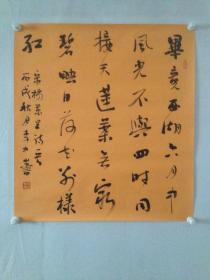 畢竟西湖六月中
風光不與四時同
接天蓮葉無窮
碧映日荷花別樣
紅
宋楊萬里詩
丙戌秋月